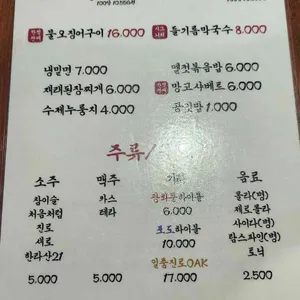 물오징어구이 16.000
들기름막국수 8.000
냉밀면 7.000
멜젓볶음밥 6.000
재래된장찌개 6.000
망고샤베트 6.000
수제누룽지 4.000
공깃밥 1.000
주류/
소주
참이슬
처음처럼
진로
새로
한라산21
5.000
맥주
카스
테라
5.000
기타
광화문하이볼
6.000
포도하이볼
10.000
일품진로OAK
17.000
음료
콜라(병)
제로콜라
사이다(병)
탐스파인(병)
토닉
2.500